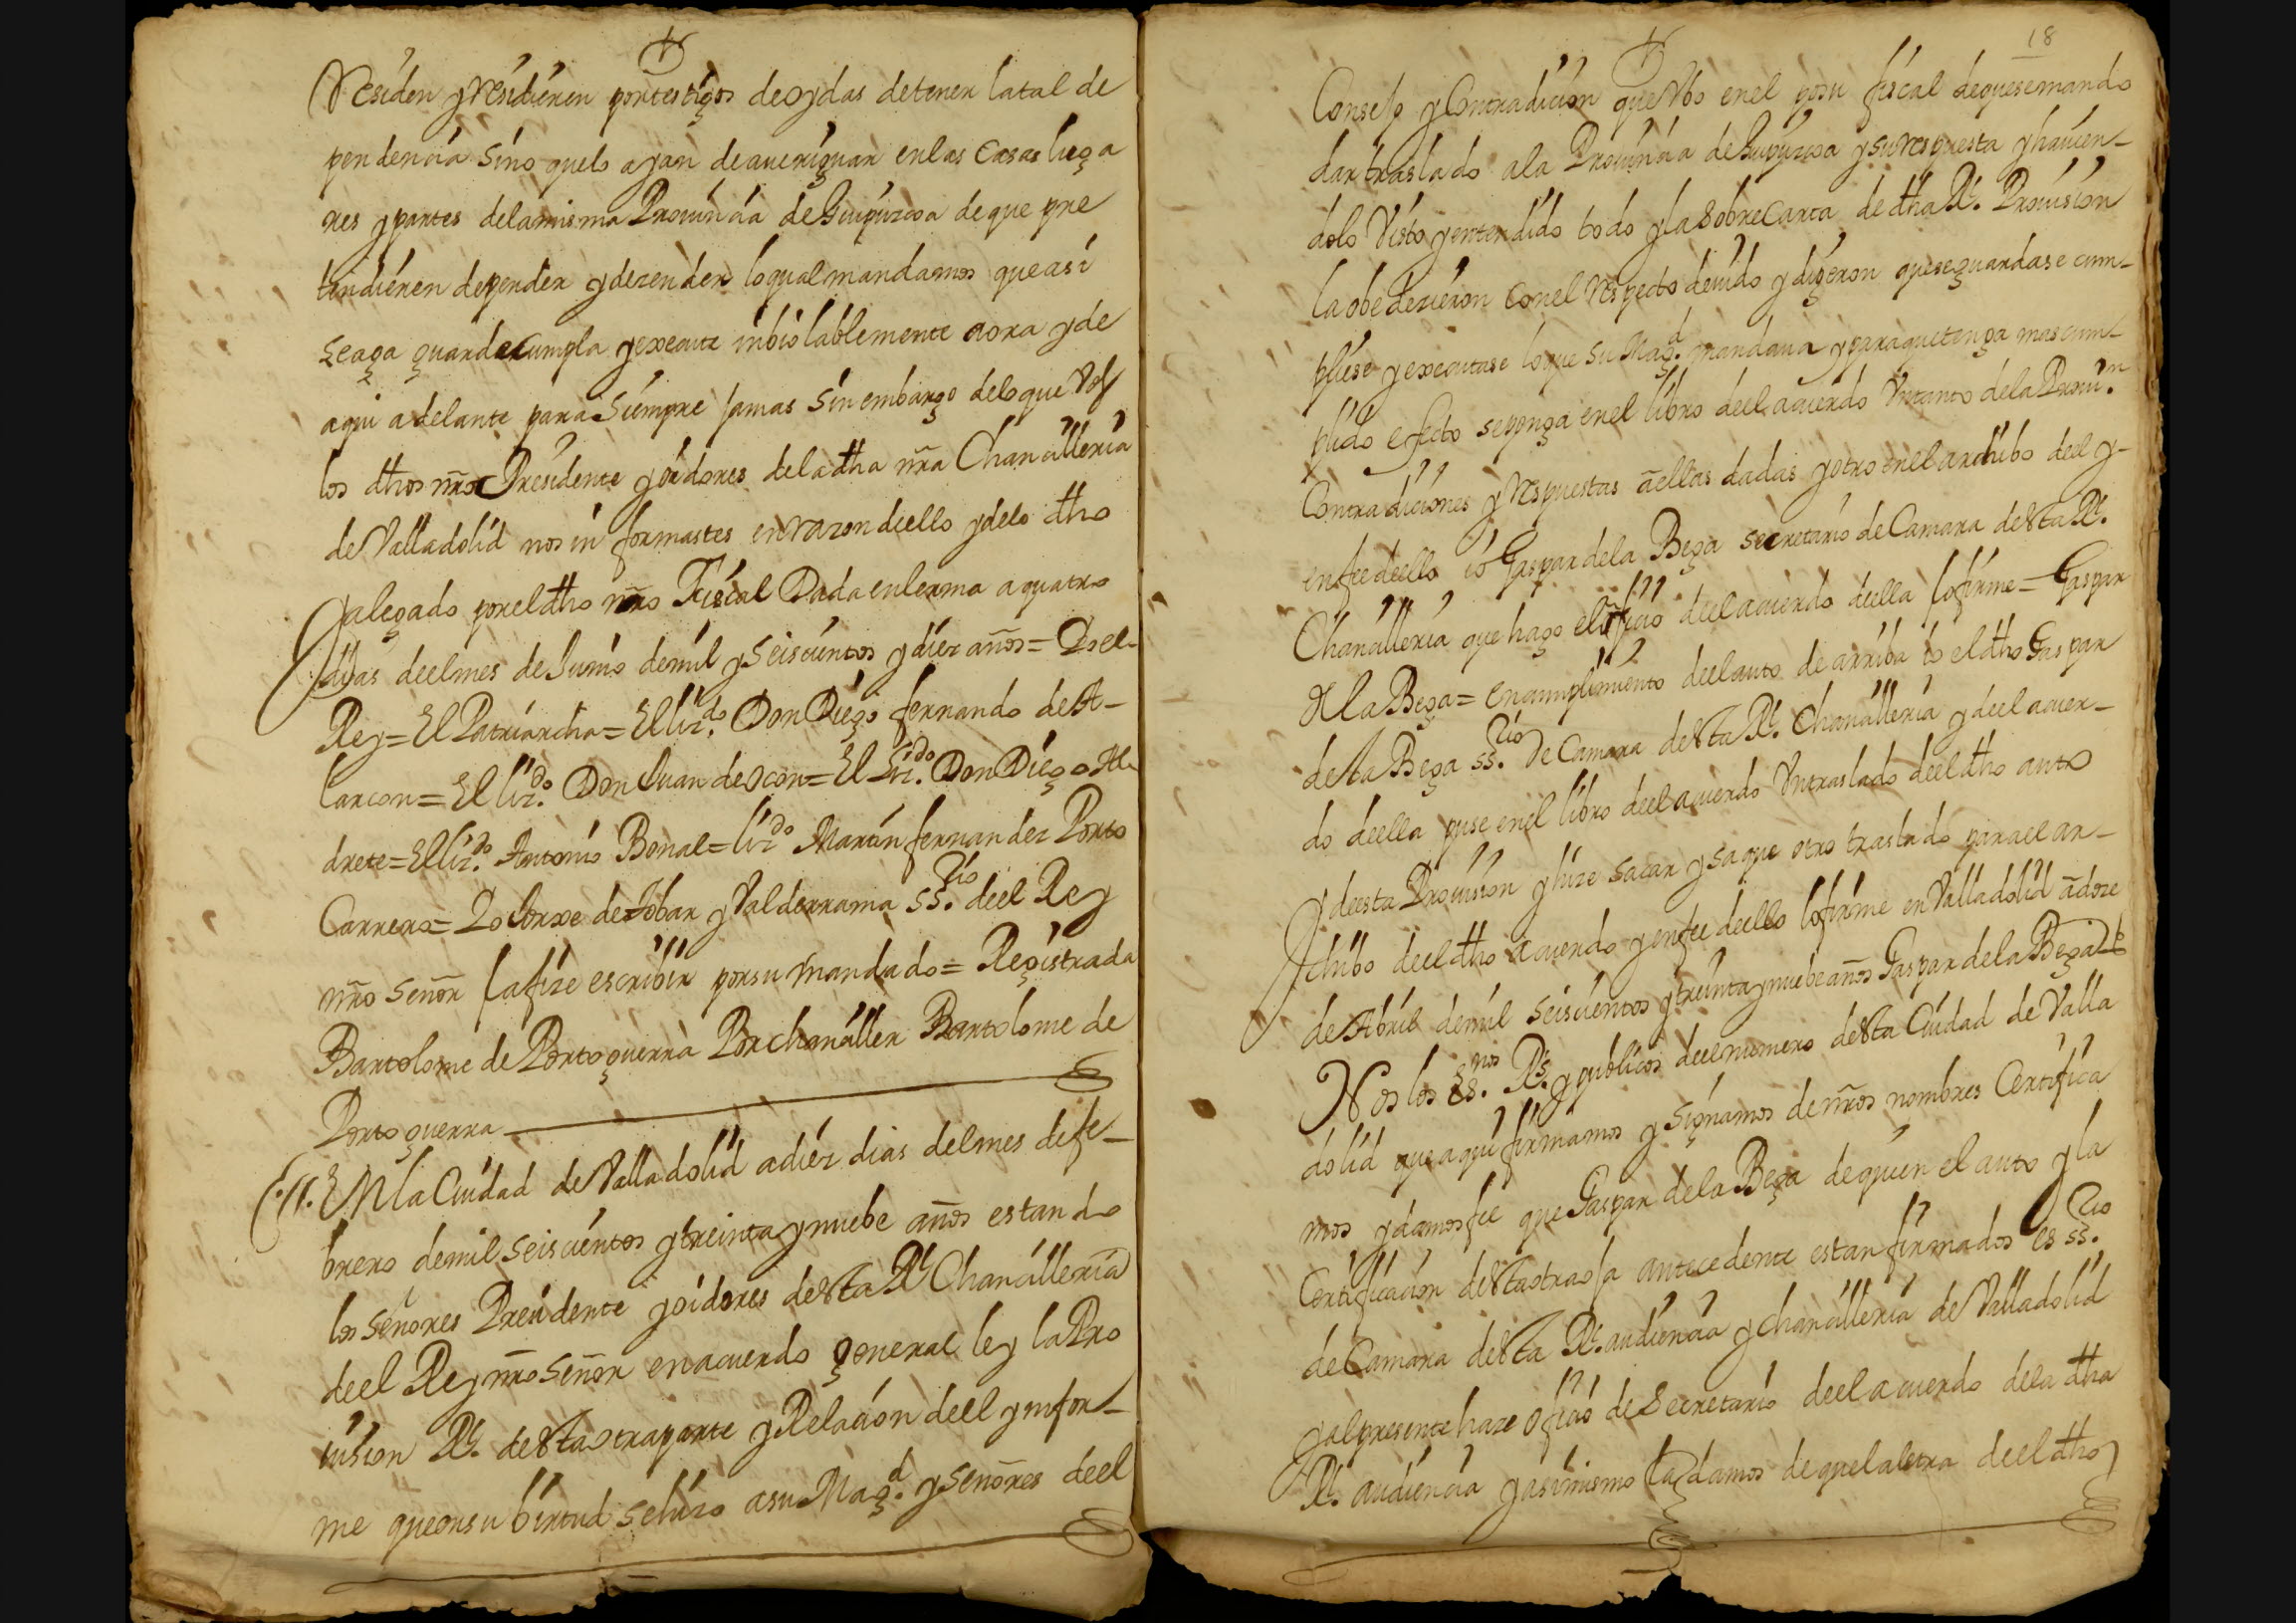 Residen y residieren por testigos de oydas de tener la tal de
pendencia sino que lo ayan de aueriguar en las Casas luga
res y partes de la misma Prouincia de Guipuzcoa de que pre
tendieren depender y dezender lo qual mandamos que así
se aga guarde cumpla y execute inbiolablemente aora y de
aqui adelante para siempre jamas sin embargo de lo que Vos
los dhos nr̃os Presidente y oidores de la dha nr̃a Chancilleria
de Valladolid nos informastes en razon de ello y de lo dho
y alegado por el dho nr̃o Fiscal Dada en lerma a quatro
dias de el mes de Junio de mil y seiscientos y diez años = Yo el
Rey = El Patriarcha = El liz.do Don Diego fernando de A-
larcon = El liz.do Don Juan de Ocon = El Liz.do Don Diego Al
drete = El liz.do Antonio Bonal = liz.do Martin fernandez Porto
Carrero = Yo Jorxe de tobar y Valderrama ss.rio de el Rey
nr̃o señor la fize escribir por su mandado = Registrada
Bartolome de Portoguerra Por chanciller Bartolome de
Portoguerra
EN la Ciudad de Valladolid a diez dias del mes de fe-
brero de mil seiscientos y treinta y nuebe años estando
los señores Presidente y oidores desta Rl Chancilleria
de el Rey nr̃o señor en acuerdo general ley la Pro
uision Rl. desta otra parte y Relacion de el ynfor-
me que en su birtud se hizo a su Mag.d y señores de el
18
Consejo y Contradicion que Vbo en el por su fiscal de que se mando
dar traslado a la Prouincia de Guipuzcoa y su respuesta y hauien-
dolo Visto y entendido todo y la sobreCarta de dha Rl. Prouision
la obedezieron con el respecto deuido y digeron que se guardase cum-
pliese y executase lo que su Mag.d mandaua y para que tenga mas cum-
plido efecto se ponga en el libro de el acuerdo Vn tanto de la Proui.n
Contradiciones y respuestas a ellas dadas y otro en el archibo de el y
en fee de ello io Gaspar de la Bega secretario de Camara desta Rl.
Chancilleria que hago el ofiçio de el acuerdo de ella lo firme = Gaspar
de la Bega = en cumplimiento de el auto de arriba io el dho Gaspar
de la Bega ss.rio de Camara desta Rl. Chancilleria y de el acuer-
do de ella puse en el libro de el acuerdo Vn traslado de el dho auto
y de esta Prouision y hize sacar y saque otro traslado para el ar-
chibo de el dho acuerdo y en fee de ello lo firme en Valladolid a doze
de Abril de mil seiscientos y treinta y nuebe años Gaspar de la Bega
Nos los es.nos Rs. y publicos de el numero desta Ciudad de Valla
dolid que aqui firmamos y signamos de nr̃os nombres Certifica
mos y damos fee que Gaspar de la Bega de quien el auto y la
Certificacion desta otra oja antecedente estan firmados es ss.rio
de Camara desta Rl. audiencia y chancilleria de Valladolid
y al presente haze ofiçio de Secretario de el acuerdo de la dha
Rl. audiencia y asimismo la damos de que la letra de el dho